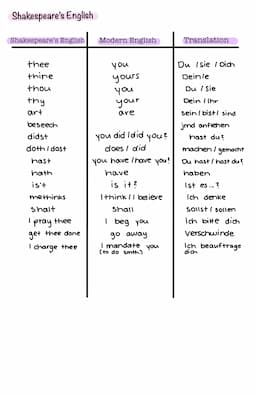 Shakespeare's English
Shakespeare's English Modern English Translation
thee you Du / sie / Dich
thine yours Dein/e
thou you Du / Sie
thy your Dein / Ihr
art are sein / bist / sind
beseech jmd anflehen
didst you did / did you? hast du?
doth / dost does / did machen / gemacht
hast you have / have you? Du hast / hast du?
hath have haben
is't is it? Ist es...?
methinks I think / I believe Ich denke
shalt shall sollst / sollen
I pray thee I beg you Ich bitte dich
get thee done go away Verschwinde
I charge thee I mandate you Ich beauftrage
(to do smth.) dich